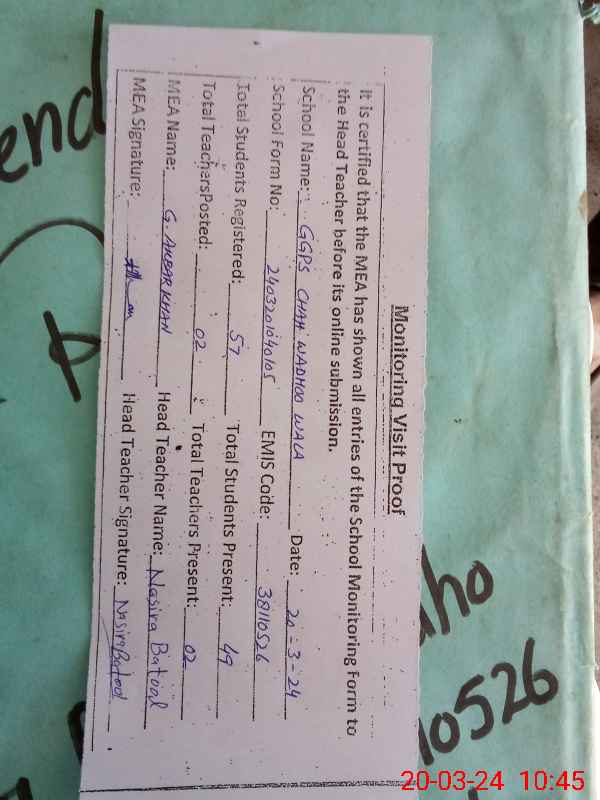 Monitoring Visit Proof
It is certified that the MEA has shown all entries of the School Monitoring Form to
the Head Teacher before its online submission.
School Name: GGPS CHAH WADHOO WALA Date: 20-3-24
School Form No: 2403201040105 EMIS Code: 38110526
Total Students Registered: 57 Total Students Present: 49
Total TeachersPosted: 02 Total Teachers Present: 02
MEA Name: G. AKBAR KHAN Head Teacher Name: Nasira Batool
MEA Signature: Head Teacher Signature: Nasira Batool
end
ho
10526
20-03-24 10:45